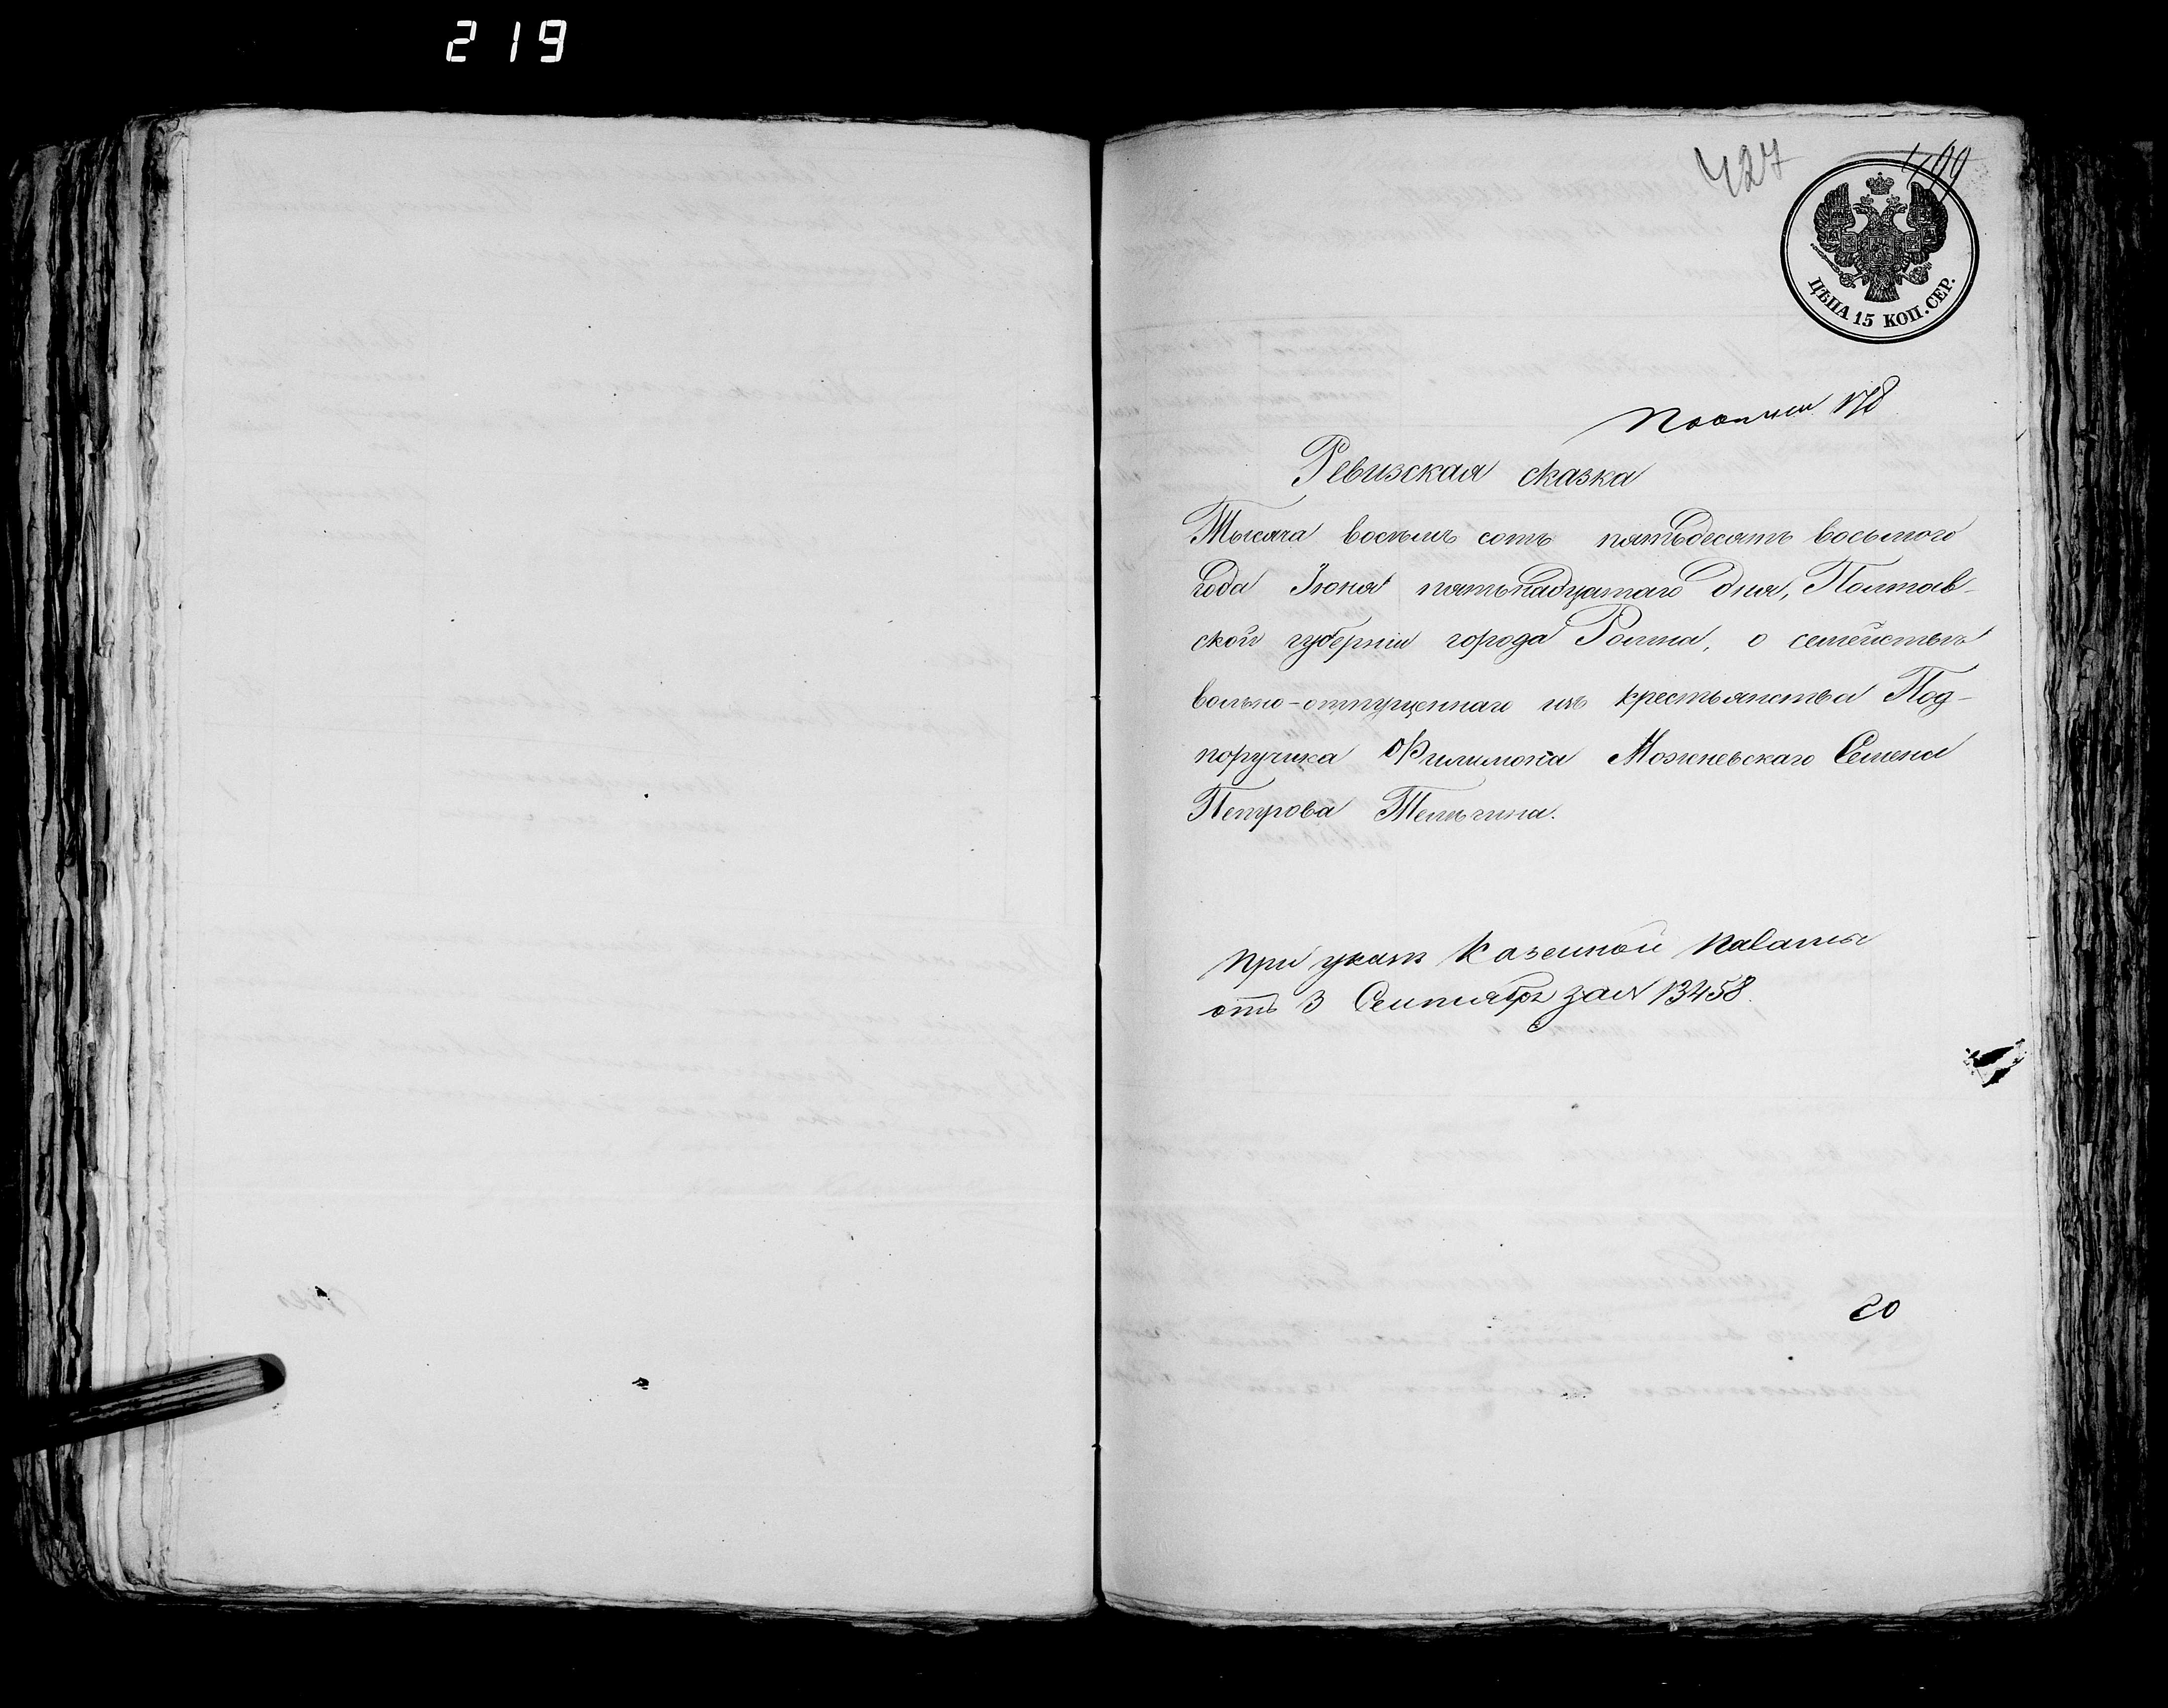 219
427
499
ЦѢНА 15 КОП. СЕР.
178
Ревизская сказка
Тысяча восемь сотъ пятьдесятъ восьмого
года Іюня пятьнадцатаго дня, Полтав-
ской губерніи города Ромна, о семействѣ
вольно-отпущеннаго изъ крестьянства Под-
поручика Филимона Можневскаго Семена
Петрова
При указѣ Казенной Палаты
отъ 3 Сентября за № 13458.
20